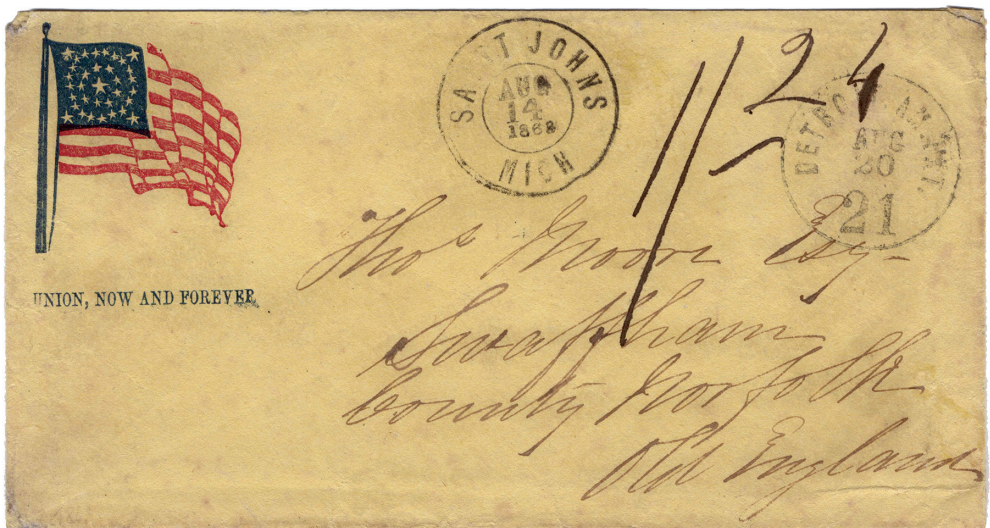 UNION, NOW AND FOREVER
SAINT JOHNS
AUG
14
MICH
24
DETROIT AM. PKT.
AUG
20
21
Thos Moore Esq
Swaffham
County Norfolk
Old England